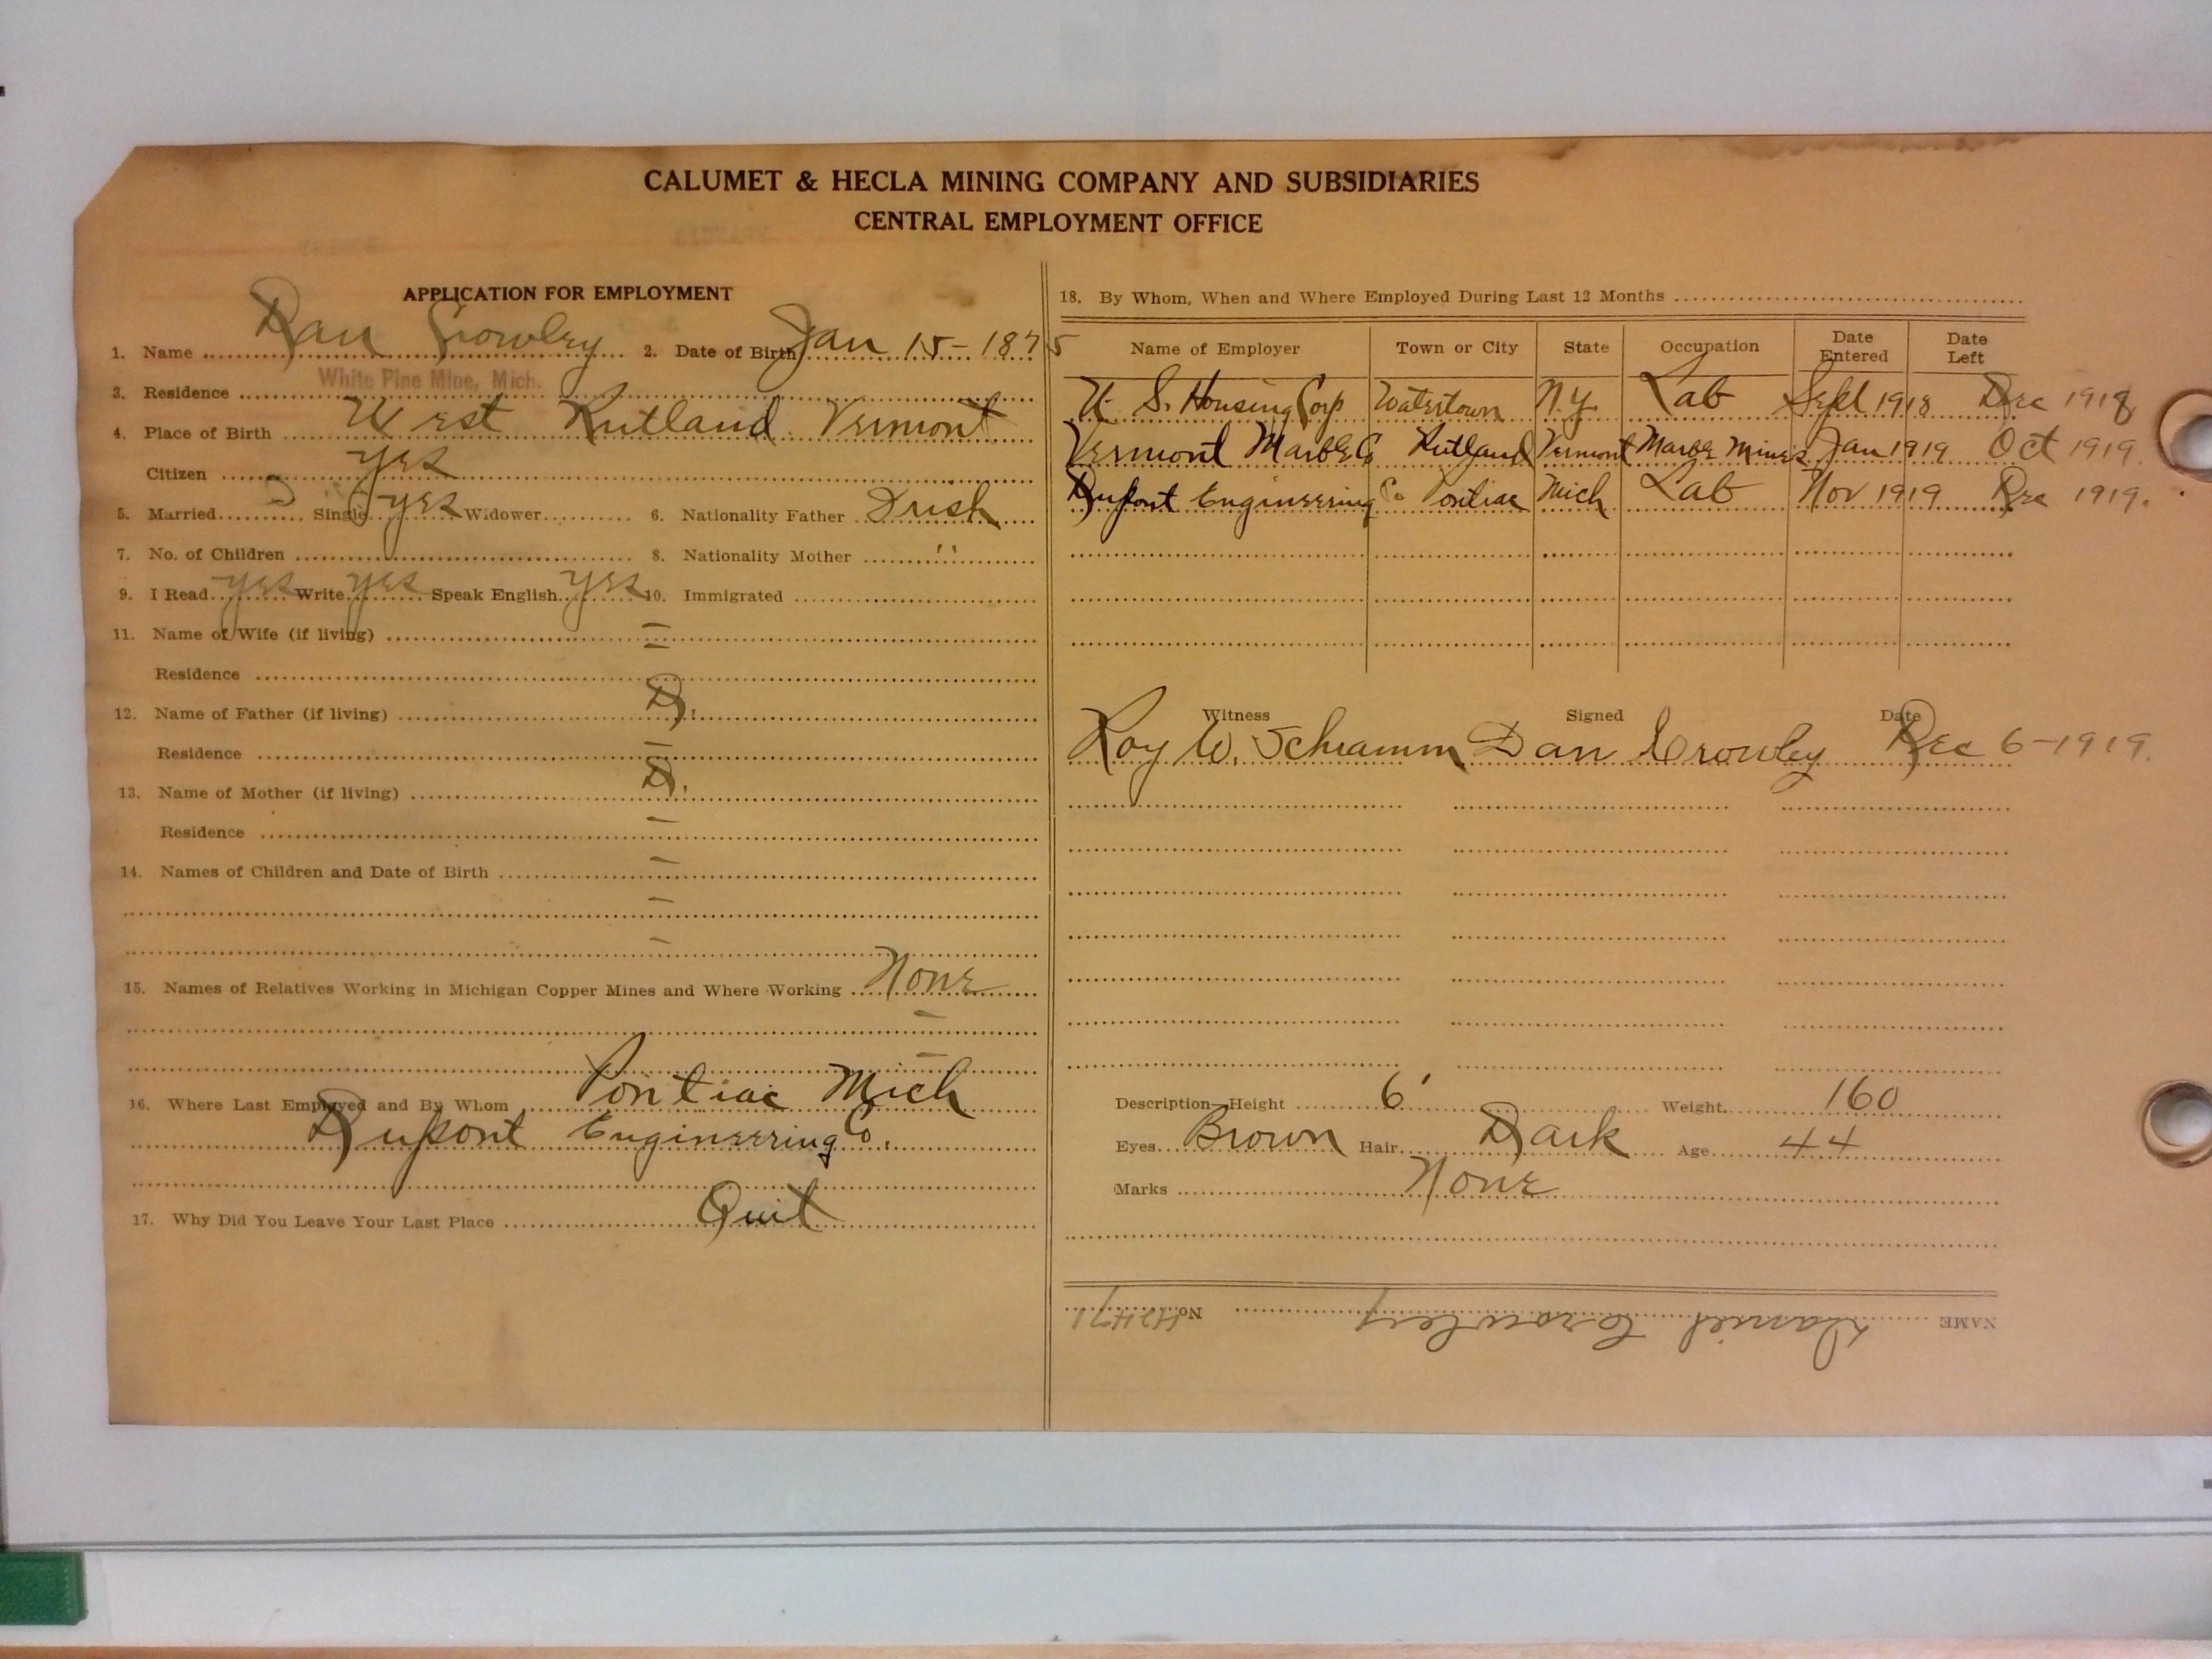 CALUMET & HECLA MINING COMPANY AND SUBSIDIARIES
CENTRAL EMPLOYMENT OFFICE
APPLICATION FOR EMPLOYMENT
1. Name Dan Crowley 2. Date of Birth Jan 15-1875
3. Residence White Pine Mine, Mich.
4. Place of Birth West Rutland Vermont
Citizen yes
5. Married Single yes Widower 6. Nationality Father Irish
7. No. of Children 8. Nationality Mother "
9. I Read yes Write yes Speak English yes 10. Immigrated
11. Name of Wife (if living) —
Residence —
12. Name of Father (if living) D.
Residence —
13. Name of Mother (if living) D.
Residence —
14. Names of Children and Date of Birth —
—
—
15. Names of Relatives Working in Michigan Copper Mines and Where Working None
—
—
16. Where Last Employed and By Whom Pontiac Mich
Dupont Engineering Co.
17. Why Did You Leave Your Last Place Quit
18. By Whom, When and Where Employed During Last 12 Months
Name of Employer Town or City State Occupation Date Entered Date Left
U. S. Housing Corp Watertown N.Y. Lab Sept 1918 Dec 1918
Vermont Marble Co Rutland Vermont Marble Mines Jan 1919 Oct 1919
Dupont Engineering Co Pontiac Mich Lab Nov 1919 Dec 1919.
Witness Signed Date
Roy W. Schramm Dan Crowley Dec 6-1919.
Description—Height 6' Weight 160
Eyes Brown Hair Dark Age 44
Marks None
NAME Daniel Crowley No.